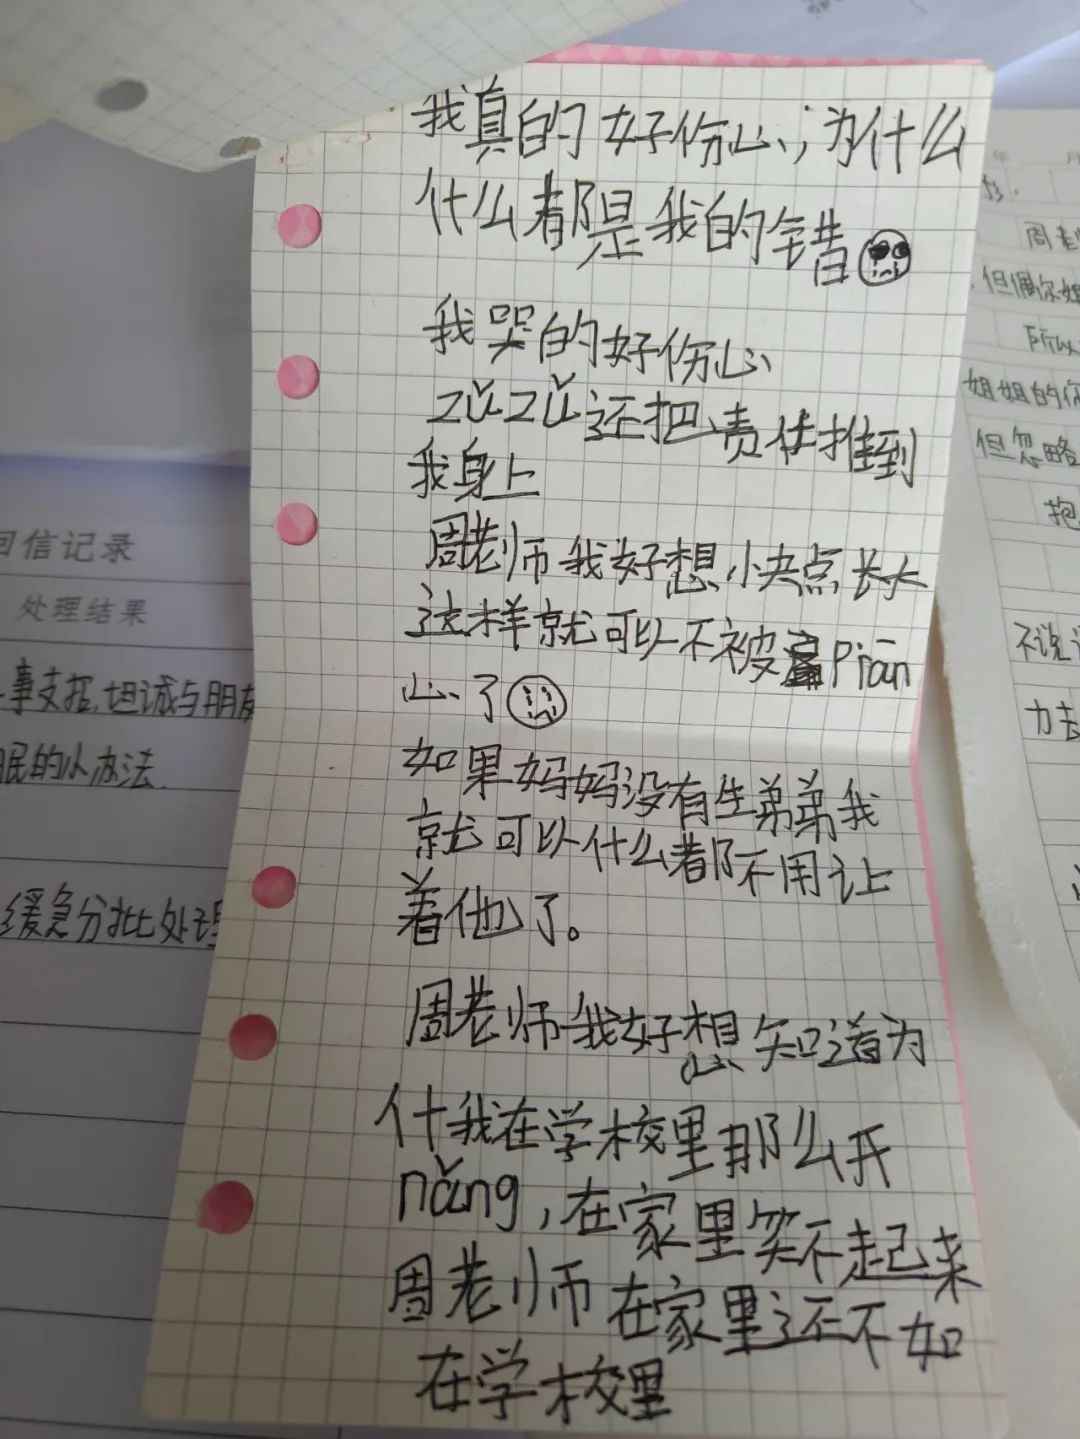 我真的好伤心,为什么
什么都是我的错
我哭的好伤心
zǔzǔ还把责任推到
我身上
周老师我好想小夬点长大
这样就可以不被piān
心了
如果妈妈没有生弟弟我
就可以什么都不用让
着他了。
周老师我好想知道为
什我在学校里那么开
nǎng,在家里笑不起来
周老师在家里还不如
在学校里
回信记录
处理结果
事支招,坦诚与朋友
眠的小办法.
缓急分批处理
年 月
周老
但偶尔姐
所以
姐姐的你
但忽略
抱
不说
力去